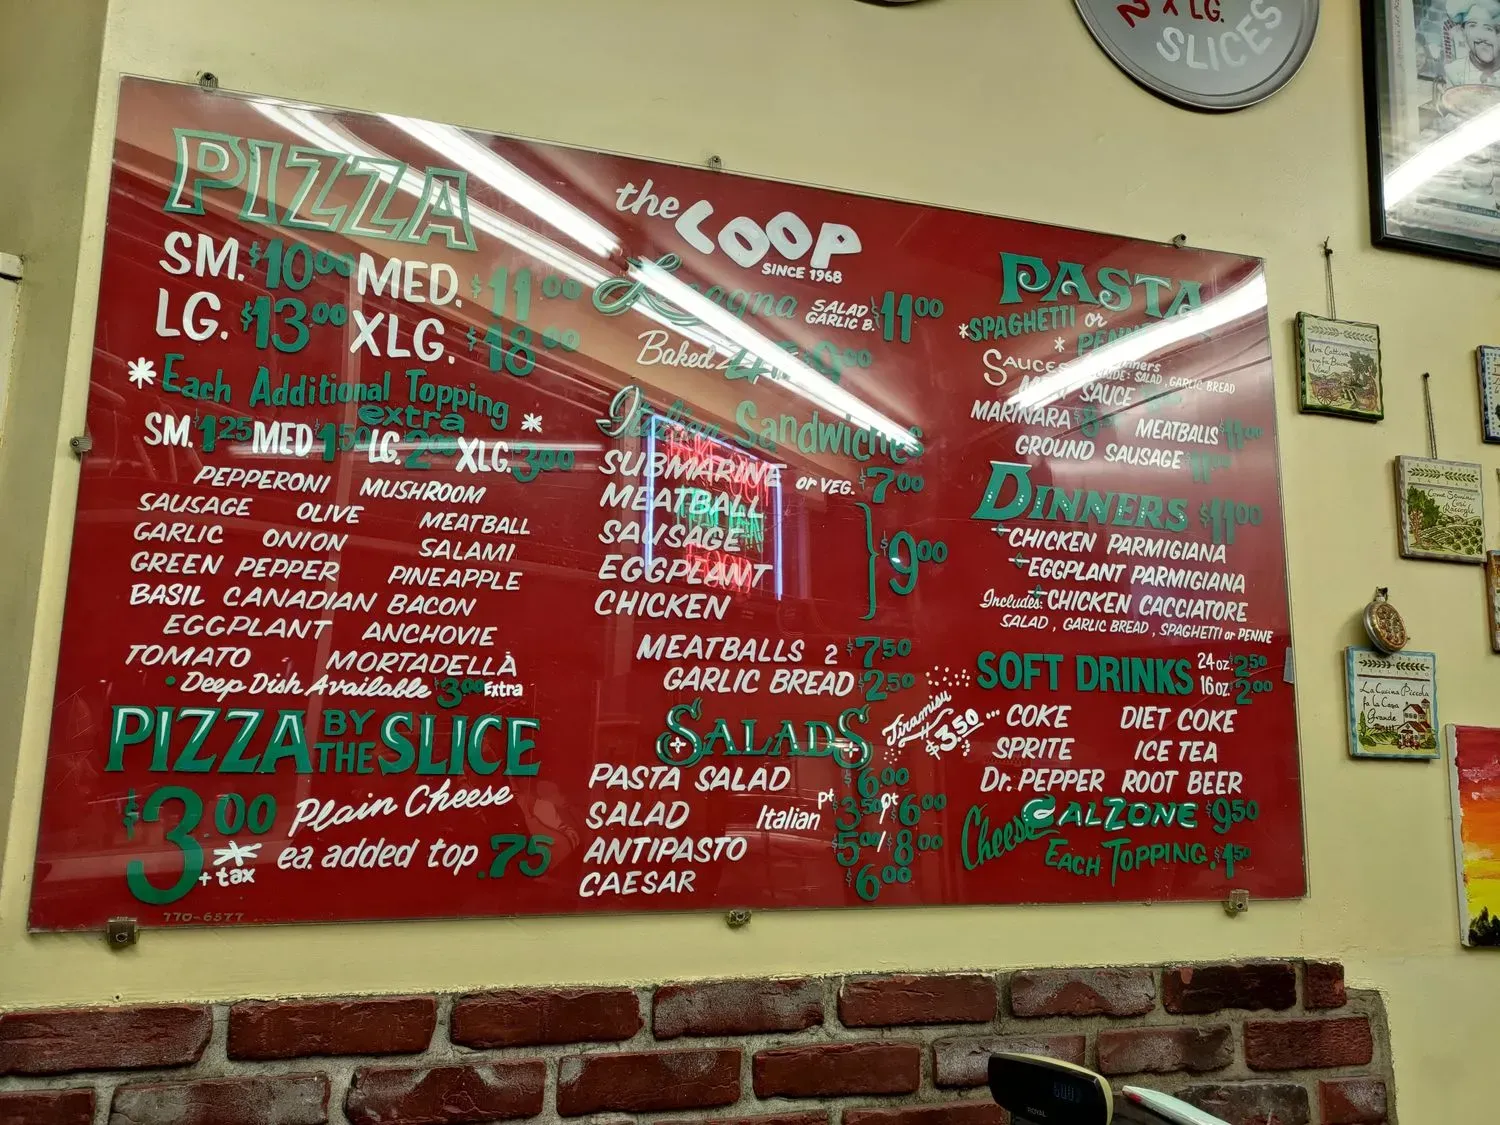 2 X LG.
SLICES
PIZZA
SM. $10.00 MED. $11.00
LG. $13.00 XLG. $18.00
* Each Additional Topping
extra *
SM. $1.25 MED $1.50 LG. $2.00 XLG. $3.00
PEPPERONI MUSHROOM
SAUSAGE OLIVE MEATBALL
GARLIC ONION SALAMI
GREEN PEPPER PINEAPPLE
BASIL CANADIAN BACON
EGGPLANT ANCHOVIE
TOMATO MORTADELLA
• Deep Dish Available $3.00 Extra
PIZZA BY THE SLICE
$3.00 Plain Cheese
* + tax ea. added top .75
770-6577
the LOOP
SINCE 1968
Lasagna SALAD GARLIC B. $11.00
Baked
Italian Sandwiches
SUBMARINE or VEG. $7.00
MEATBALL
SAUSAGE
EGGPLANT
CHICKEN
$9.00
MEATBALLS 2 $7.50
GARLIC BREAD $2.50
SALADS
PASTA SALAD $6.00
SALAD Italian pt $3.50/qt $6.00
ANTIPASTO $5.00/$8.00
CAESAR $6.00
Tiramisu
$3.50
PASTA
*SPAGHETTI or
* PENNE
SAUCES
: SALAD, GARLIC BREAD
SAUCE
MARINARA MEATBALLS $11.00
GROUND SAUSAGE
DINNERS $11.00
CHICKEN PARMIGIANA
EGGPLANT PARMIGIANA
Includes: CHICKEN CACCIATORE
SALAD, GARLIC BREAD, SPAGHETTI or PENNE
SOFT DRINKS 24 oz. $2.50
16 oz. $2.00
COKE DIET COKE
SPRITE ICE TEA
Dr. PEPPER ROOT BEER
Cheese CALZONE $9.50
EACH TOPPING. $1.50
La Cucina Piccola
fa la Casa
Grande
ROYAL